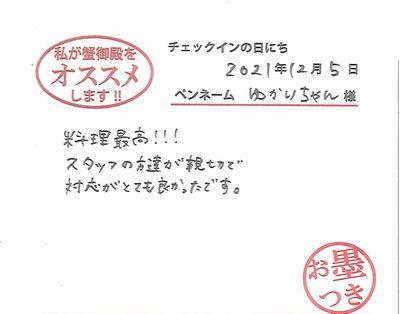 私が蟹御殿を
オススメ
します!!
チェックインの日にち
2021年12月5日
ペンネーム ゆかりちゃん 様
料理最高!!!
スタッフの方達が親切で
対応がとても良かったです。
お墨
つき